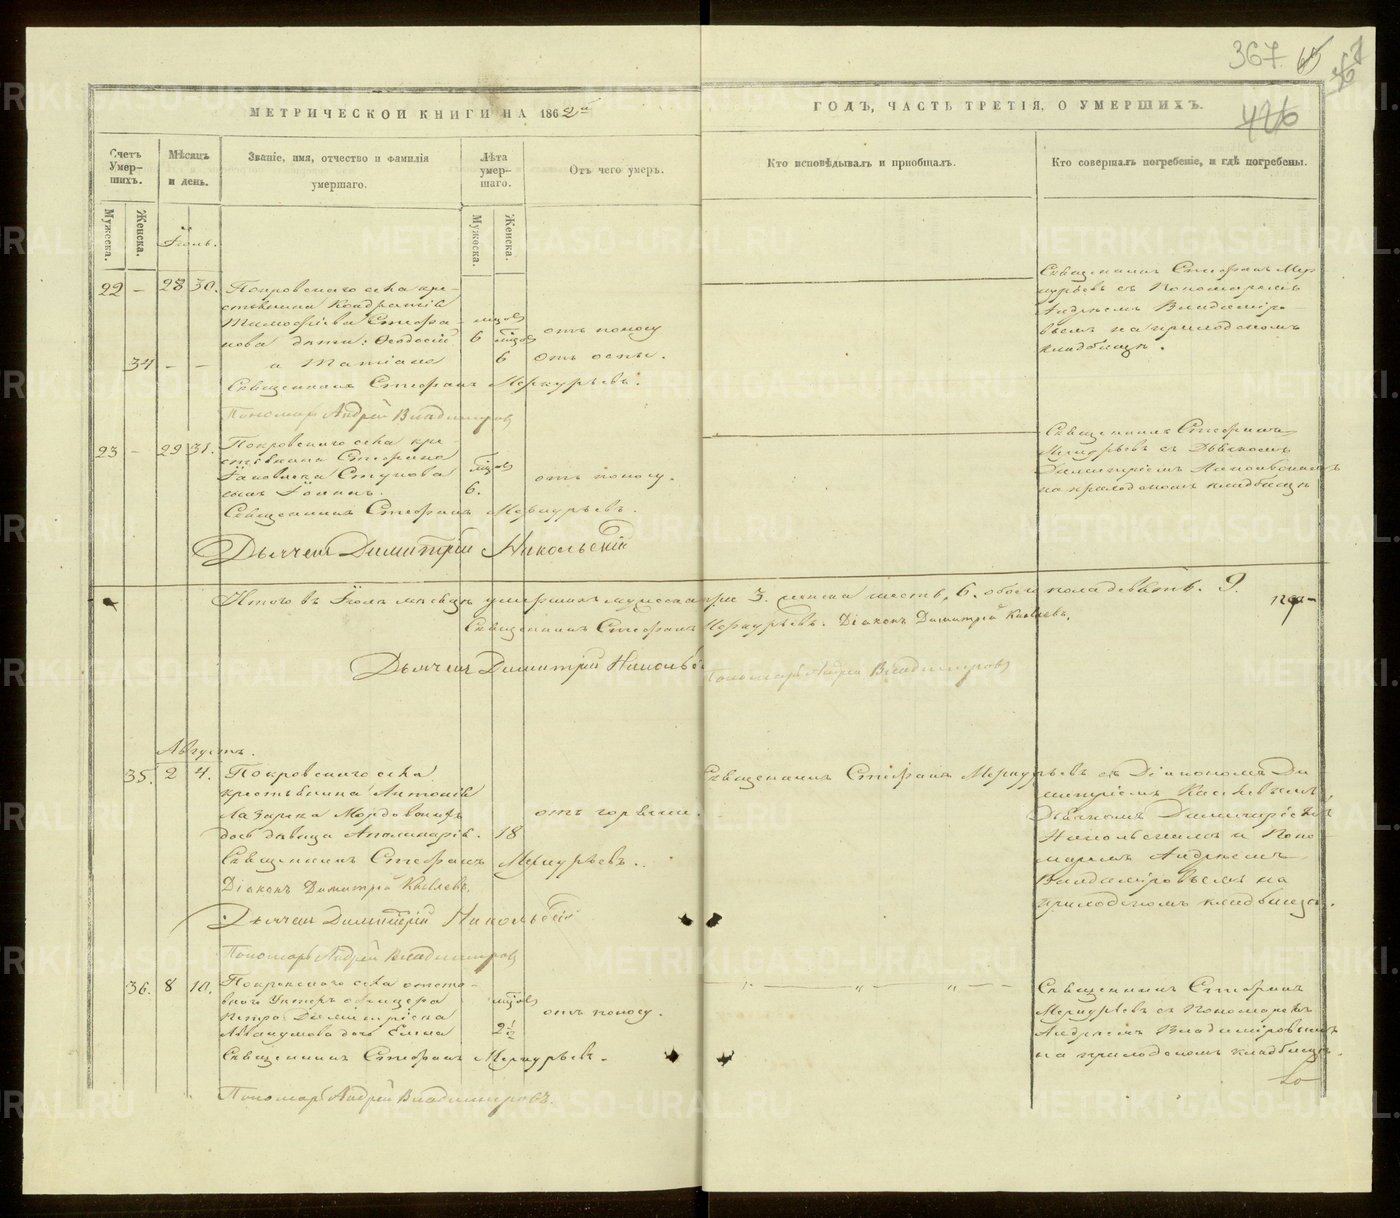 367 65
426
МЕТРИЧЕСКОЙ КНИГИ НА 1862й
ГОДЪ, ЧАСТЬ ТРЕТІЯ, О УМЕРШИХЪ.
Счетъ Умер-шихъ.
Мѣсяцъ и день.
Званіе, имя, отчество и фамилія умершаго.
Лѣта умер-шаго.
Отъ чего умеръ.
Кто исповѣдывалъ и пріобщалъ.
Кто совершалъ погребеніе, и гдѣ погребены.
Мужеска.
Женска.
Мужеска.
Женска.
Іюль.
22 - 28 30. Покровскаго села кре-
стьянина Кондратія
Тимофѣева Стефа-
нова дѣти: Ѳеодосій 6 отъ поносу
34 - - и Татіана 6 отъ оспы.
Священникъ Стефанъ Меркурьевъ.
Пономарь Андрей Владимировъ
Священникъ Стефанъ Мер-
курьевъ съ Пономаремъ
Андреемъ Владиміро-
вымъ на приходскомъ
кладбищѣ.
23 - 29 31. Покровскаго села кре-
стьянина Стефана
Іаковлева Ступова отъ поносу.
сынъ Іоаннъ. 6.
Священникъ Стефанъ Меркурьевъ.
Дьячекъ Димитрій Никольскій
Священникъ Стефанъ
Меркурьевъ съ Дьячкомъ
Димитріемъ Никольскимъ
на приходскомъ кладбищѣ
Итого въ Іюлѣ мѣсяцѣ умершихъ мужеска три 3. женска шесть, 6. обоего пола девять. 9.
Священникъ Стефанъ Меркурьевъ. Діаконъ Димитрій
Дьячекъ Димитрій Никольскій Пономарь Андрей Владимировъ
Августъ.
35. 2 4. Покровскаго села
крестьянина Антонія
Лазарева Мордовскихъ отъ горячки.
дочь дѣвица Аполинарія. 18
Священникъ Стефанъ Меркурьевъ.
Діаконъ Димитрій
Дьячекъ Димитрій Никольскій
Пономарь Андрей Владимировъ
Священникъ Стефанъ Меркурьевъ съ Діакономъ Ди-
митріемъ
Дьячкомъ Димитріемъ
Никольскимъ и Поно-
маремъ Андреемъ
Владиміровымъ на
приходскомъ кладбищѣ.
36. 8 10. Покровскаго села отста-
внаго Унтеръ офицера
Петра Димитріева отъ поносу.
Аввакумова дочь Елена 2½
Священникъ Стефанъ Меркурьевъ.
Пономарь Андрей Владимировъ.
Священникъ Стефанъ
Меркурьевъ съ Пономаремъ
Андреемъ Владиміровымъ
на приходскомъ кладбищѣ.
METRIKI.GASO-URAL.RU